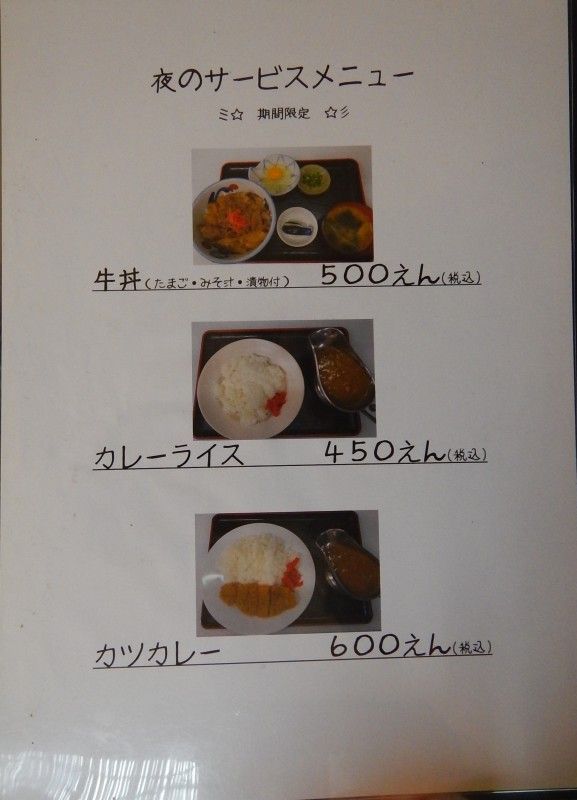 夜のサービスメニュー
ミ☆ 期間限定 ☆彡
牛丼(たまご・みそ汁・漬物付) 500えん(税込)
カレーライス 450えん(税込)
カツカレー 600えん(税込)